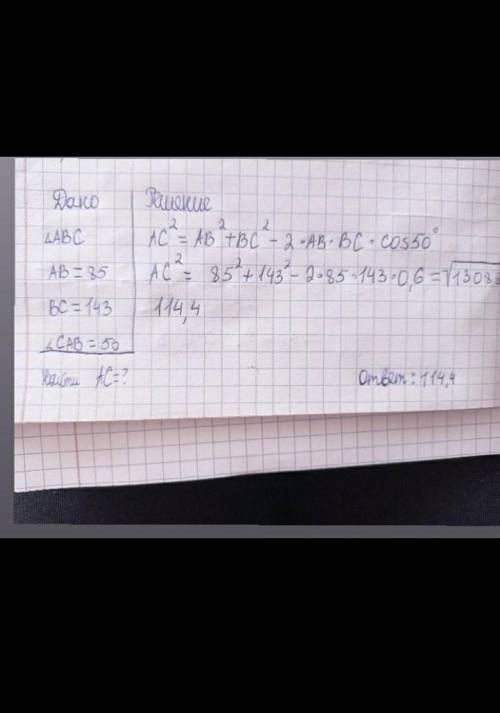 Дано
△ABC
AB = 85
BC = 143
∠CAB = 50
Найти AC = ?
Решение
AC² = AB² + BC² - 2 · AB · BC · cos50°
AC² = 85² + 143² - 2 · 85 · 143 · 0,6 = √1308
114,4
Ответ: 114,4